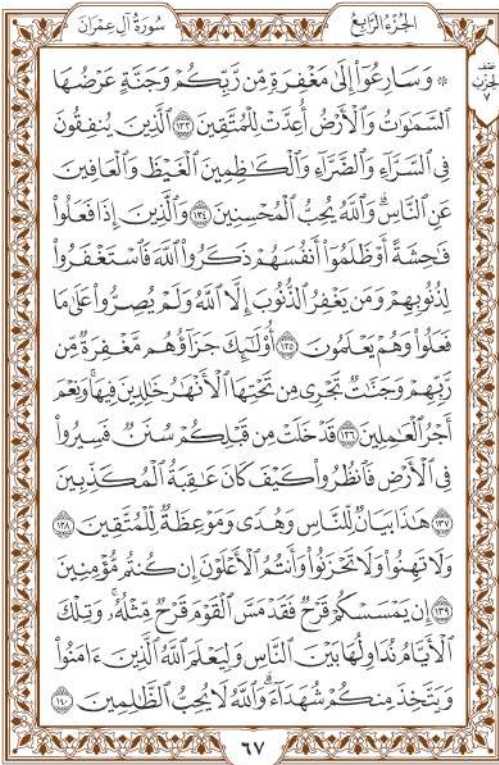 الجُزْءُ الرَّابِعُ
سُورَةُ آلِ عِمْرَانَ
نصف
الحزب
٧
۞ وَسَارِعُوٓاْ إِلَىٰ مَغْفِرَةٖ مِّن رَّبِّكُمْ وَجَنَّةٍ عَرْضُهَا
ٱلسَّمَٰوَٰتُ وَٱلْأَرْضُ أُعِدَّتْ لِلْمُتَّقِينَ ١٣٣ ٱلَّذِينَ يُنفِقُونَ
فِي ٱلسَّرَّآءِ وَٱلضَّرَّآءِ وَٱلْكَٰظِمِينَ ٱلْغَيْظَ وَٱلْعَافِينَ
عَنِ ٱلنَّاسِۗ وَٱللَّهُ يُحِبُّ ٱلْمُحْسِنِينَ ١٣٤ وَٱلَّذِينَ إِذَا فَعَلُواْ
فَٰحِشَةً أَوْ ظَلَمُوٓاْ أَنفُسَهُمْ ذَكَرُواْ ٱللَّهَ فَٱسْتَغْفَرُواْ
لِذُنُوبِهِمْ وَمَن يَغْفِرُ ٱلذُّنُوبَ إِلَّا ٱللَّهُ وَلَمْ يُصِرُّواْ عَلَىٰ مَا
فَعَلُواْ وَهُمْ يَعْلَمُونَ ١٣٥ أُوْلَٰٓئِكَ جَزَآؤُهُم مَّغْفِرَةٞ مِّن
رَّبِّهِمْ وَجَنَّٰتٞ تَجْرِي مِن تَحْتِهَا ٱلْأَنْهَٰرُ خَٰلِدِينَ فِيهَاۚ وَنِعْمَ
أَجْرُ ٱلْعَٰمِلِينَ ١٣٦ قَدْ خَلَتْ مِن قَبْلِكُمْ سُنَنٞ فَسِيرُواْ
فِي ٱلْأَرْضِ فَٱنظُرُواْ كَيْفَ كَانَ عَٰقِبَةُ ٱلْمُكَذِّبِينَ
١٣٧ هَٰذَا بَيَانٞ لِّلنَّاسِ وَهُدٗى وَمَوْعِظَةٞ لِّلْمُتَّقِينَ ١٣٨
وَلَا تَهِنُواْ وَلَا تَحْزَنُواْ وَأَنتُمُ ٱلْأَعْلَوْنَ إِن كُنتُم مُّؤْمِنِينَ
١٣٩ إِن يَمْسَسْكُمْ قَرْحٞ فَقَدْ مَسَّ ٱلْقَوْمَ قَرْحٞ مِّثْلُهُۥۚ وَتِلْكَ
ٱلْأَيَّامُ نُدَاوِلُهَا بَيْنَ ٱلنَّاسِ وَلِيَعْلَمَ ٱللَّهُ ٱلَّذِينَ ءَامَنُواْ
وَيَتَّخِذَ مِنكُمْ شُهَدَآءَۗ وَٱللَّهُ لَا يُحِبُّ ٱلظَّٰلِمِينَ ١٤٠
٦٧